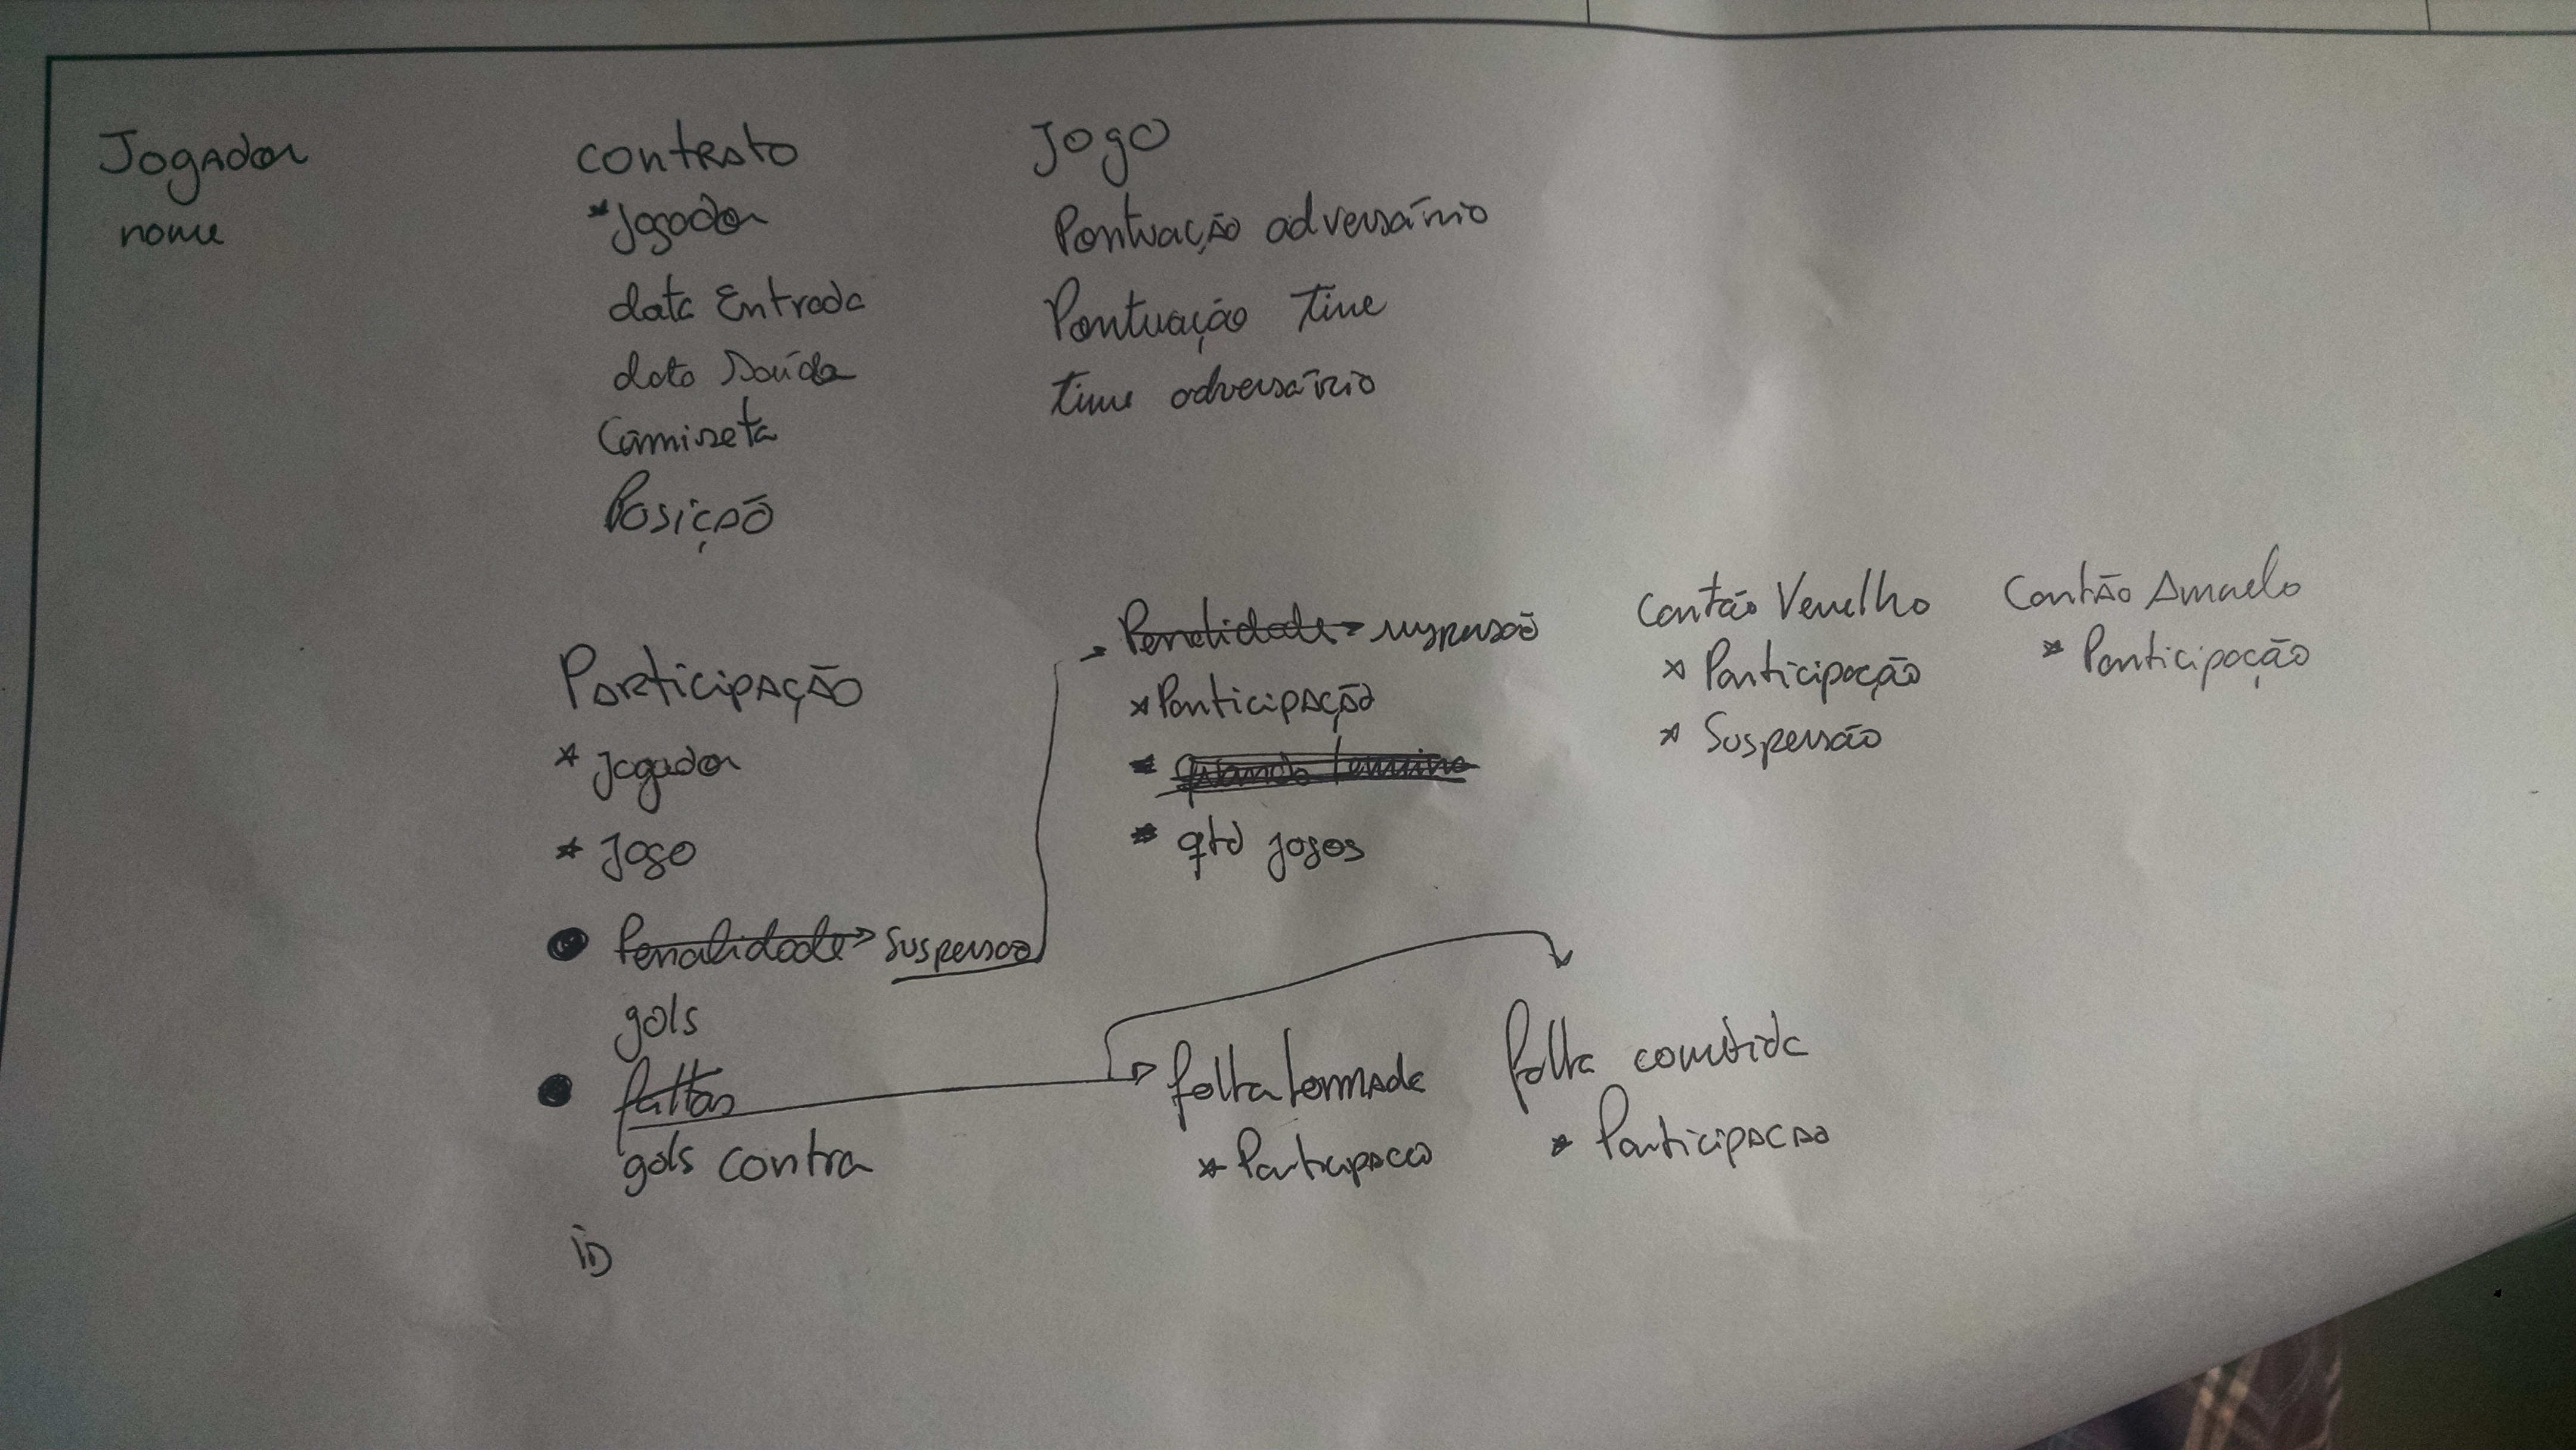 Jogador
nome
contrato
* Jogador
data Entrada
data Saída
Camiseta
Posição
Jogo
Pontuação adversário
Pontuação Time
time adversário
Participação
* Jogador
* Jogo
Penalidade → Suspensao
gols
faltas
gols contra
ID
Penalidade → suspensão
* Participação
* quando termina
* qtd jogos
Cartão Vermelho
* Participação
* Suspensão
Cartão Amarelo
* Participação
falta tomada
* Participacao
falta cometida
* Participacao